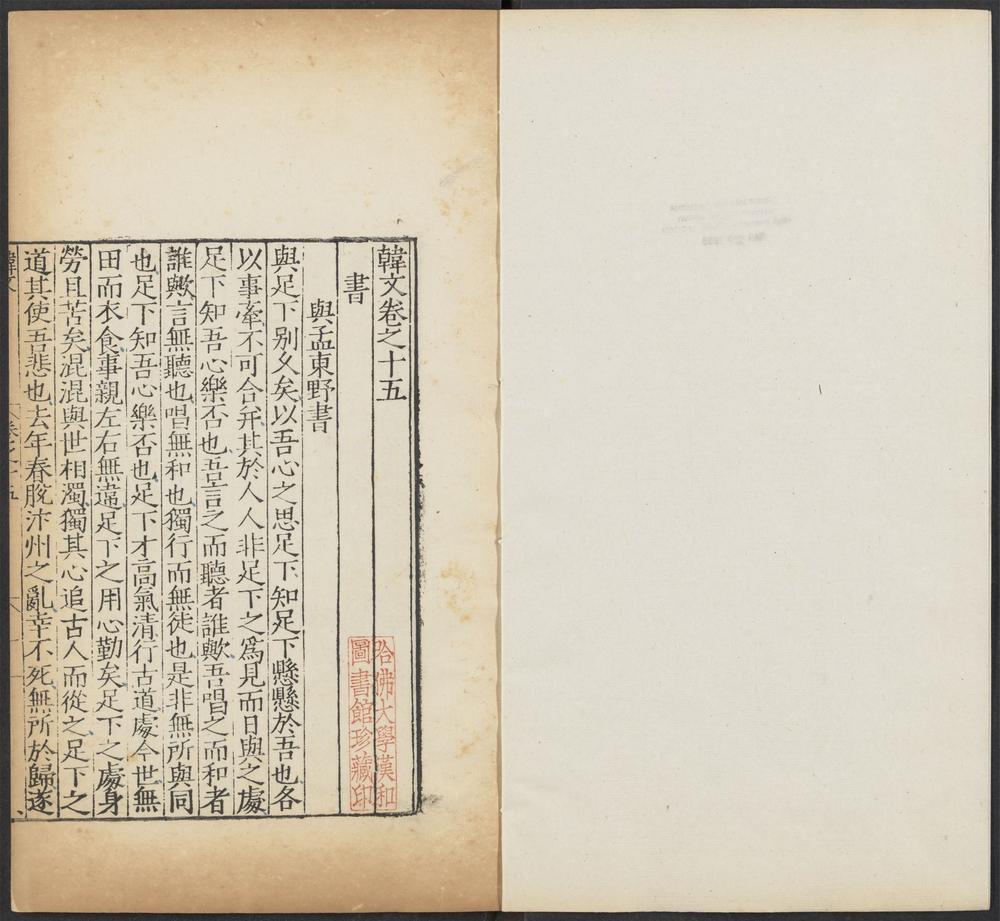 韓文卷之十五
書
與孟東野書
與足下别乆矣以吾心之思足下知足下懸懸於吾也各
以事牽不可合并其於人人非足下之爲見而日與之處
足下知吾心樂否也吾言之而聽者誰歟吾唱之而和者
誰歟言無聽也唱無和也獨行而無徒也是非無所與同
也足下知吾心樂否也足下才高氣清行古道處今世無
田而衣食事親左右無違足下之用心勤矣足下之處身
勞且苦矣混混與世相濁獨其心追古人而從之足下之
道其使吾悲也去年春脫汴州之亂幸不死無所於歸遂
哈佛大學漢和
圖書館珍藏印